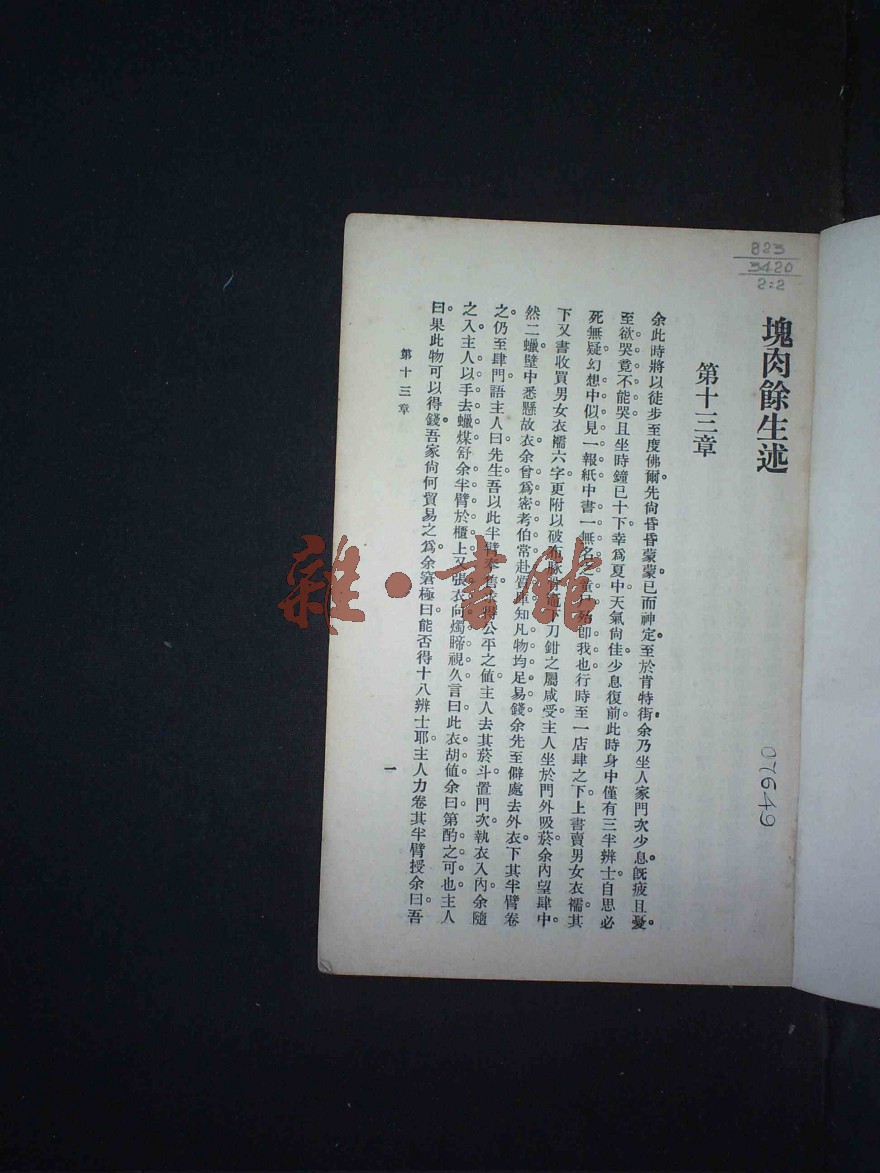 823
3420
2:2
塊肉餘生述
第十三章
余此時將以徒步至度佛爾。先尙昏昏蒙蒙。已而神定。至於肯特街。余乃坐人家門次少息。旣疲且憂。
至欲哭竟不能哭。且坐時鐘已十下。幸爲夏中天氣尙佳。少息復前。此時身中僅有三半辨士。自思必
死無疑。幻想中似見一報紙中書一無名之童
卽我也。行時至一店肆之下。上書賣男女衣襦。其
下又書收買男女衣襦六字。更附以破
下刀鉗之屬咸受。主人坐於門外吸菸。余內望肆中。
然二蠟。壁中悉懸故衣。余曾爲密考伯常赴質庫。知凡物均足易錢。余先至僻處去外衣。下其半臂卷
之。仍至肆門語主人曰。先生。吾以此半臂
公平之値。主人去其菸斗置門次。執衣入內。余隨
之入。主人以手去蠟煤。舒余半臂於櫃上。又張衣向燭睇視。久言曰。此衣胡値。余曰。第酌之可也。主人
曰。果此物可以得錢。吾家尙何貿易之爲。余窘極曰。能否得十八辨士耶。主人力卷其半臂授余曰。吾
第十三章
一
07649
雜·書館